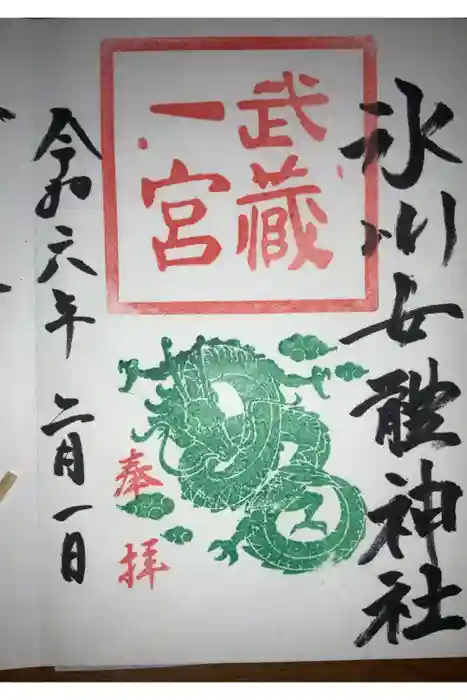 氷川女體神社
武蔵
一宮
奉拝
令和六年 二月一日